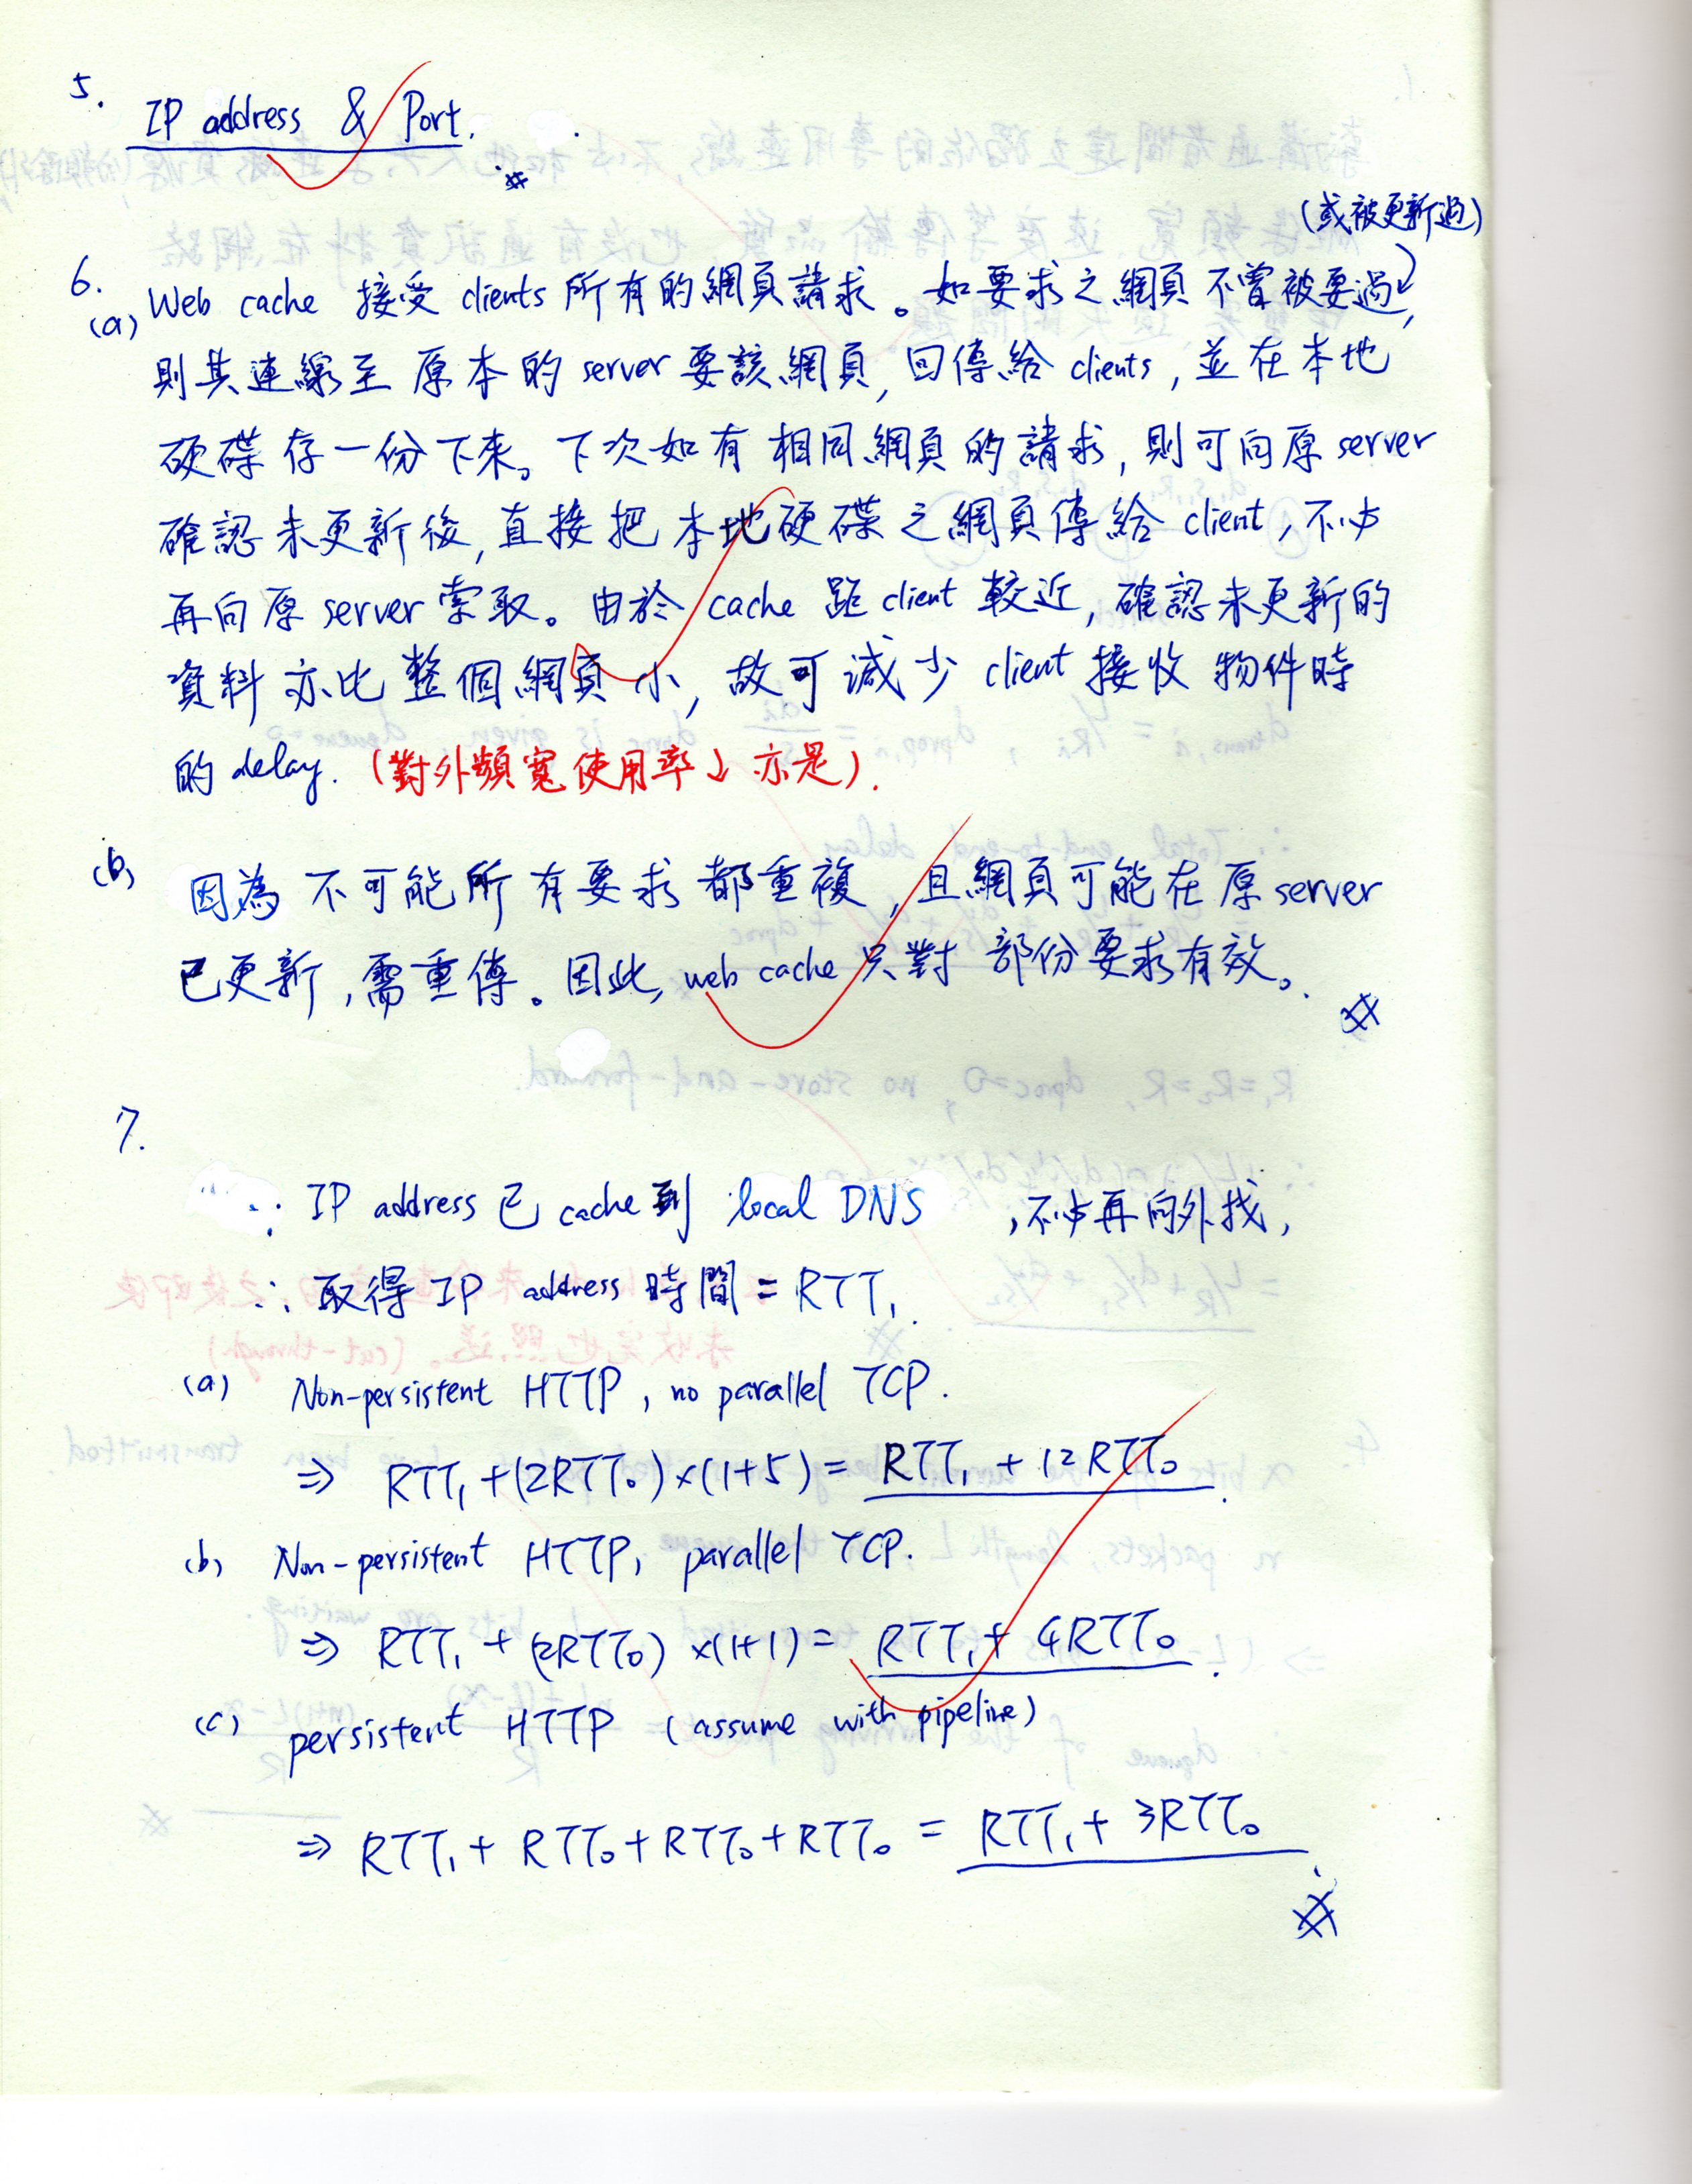 5.
IP address & Port.
(或被更新過)
6.
(a) Web cache 接受 clients 所有的網頁請求。如要求之網頁不曾被要過,
則其連線至原本的 server 要該網頁, 回傳給 clients, 並在本地
硬碟存一份下來。下次如有相同網頁的請求, 則可向原 server
確認未更新後, 直接把本地硬碟之網頁傳給 client, 不必
再向原 server 索取。由於 cache 距 client 較近, 確認未更新的
資料亦比整個網頁小, 故可減少 client 接收物件時
的 delay. (對外頻寬使用率↓亦是).
(b) 因為不可能所有要求都重複, 且網頁可能在原 server
已更新, 需重傳。因此, web cache 只對部份要求有效。
7.
∵ IP address 已 cache 到 local DNS , 不必再向外找,
∴ 取得 IP address 時間 = RTT₁.
(a) Non-persistent HTTP, no parallel TCP.
⇒ RTT₁ + (2RTT₀) × (1+5) = RTT₁ + 12RTT₀.
(b) Non-persistent HTTP, parallel TCP.
⇒ RTT₁ + (2RTT₀) × (1+1) = RTT₁ + 4RTT₀.
(c) persistent HTTP (assume with pipeline)
⇒ RTT₁ + RTT₀ + RTT₀ + RTT₀ = RTT₁ + 3RTT₀.